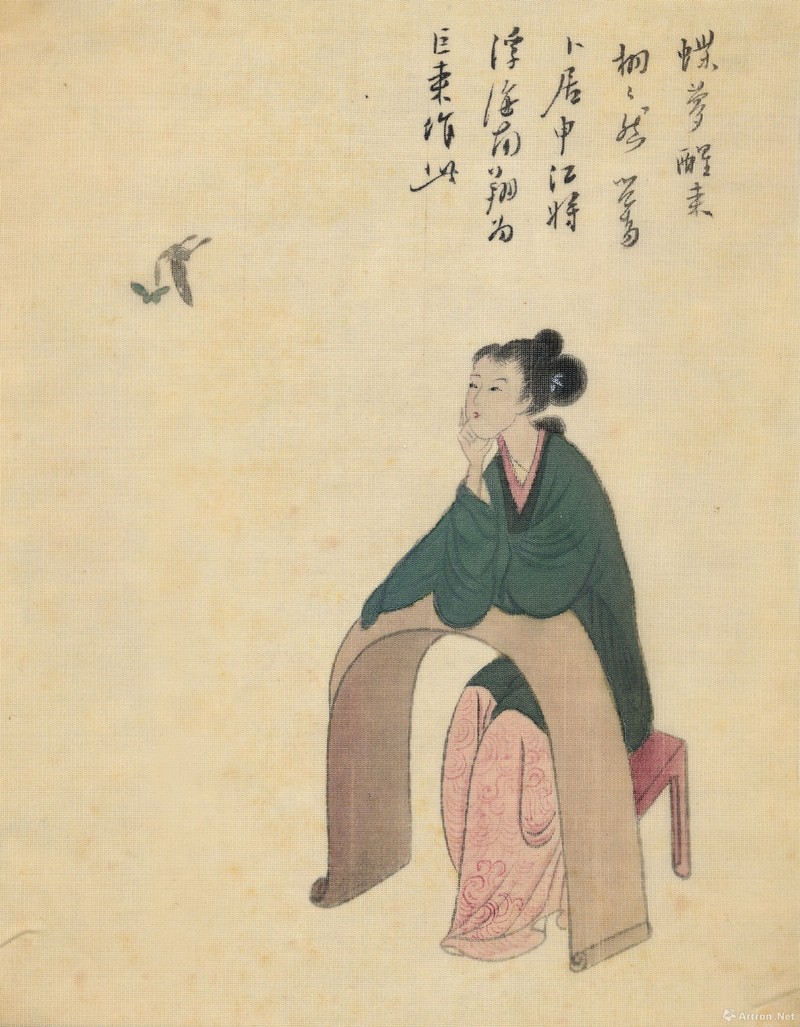 蝶夢醒来
栩〻然
卜居申江将
浮海南翔为
巨来作此
Artron.Net